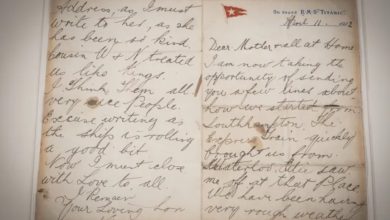 On board R.M.S "Titanic".
April 11. 1912
Dear Mother & all at Home
I am now taking the
opportunity of sending
you a few lines about
how we started from
Southhampton. The
Express Train quickly
brought us from
Waterloo saw
me of at that place.
We have been having
very rough weather
Address, as I must
write to her, as she
has been so kind,
W & N treated
us like kings.
I think them all
very nice people.
Excuse writing as
the ship is rolling
a good bit
Now I must close
with Love to all
I Remain
Your Loving Son